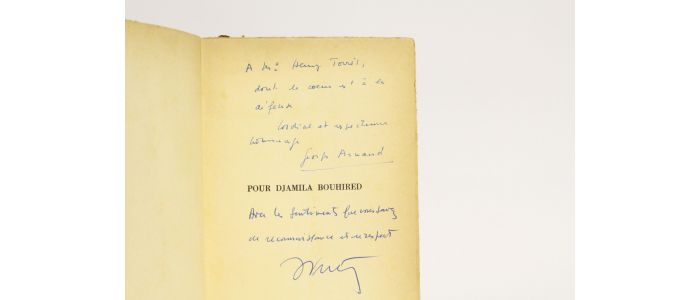 A Me Henry Torrès,
dont le coeur est à la
défense
Cordial et respectueux
hommage
Georges Arnaud
POUR DJAMILA BOUHIRED
Avec les sentiments que vous savez
de reconnaissance et respect